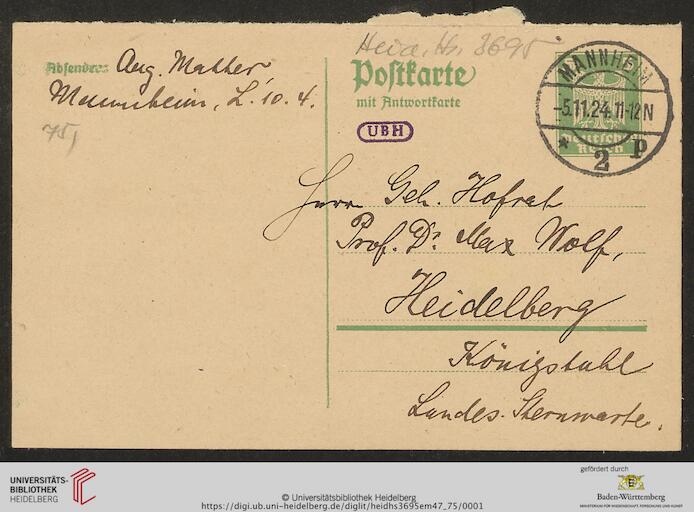 Heid. Hs. 3695
Absender: Aug. Mather
Mannheim, L. 10. 4.
75,
Postkarte
mit Antwortkarte
UBH
MANNHEIM
-5.11.24.11-12N
* 2 P
Deutsches
Reich
Herrn Geh. Hofrat
Prof. Dr. Max Wolf,
Heidelberg
Königstuhl
Landes-Sternwarte.
UNIVERSITÄTS-
BIBLIOTHEK
HEIDELBERG
© Universitätsbibliothek Heidelberg
https://digi.ub.uni-heidelberg.de/diglit/heidhs3695em47_75/0001
gefördert durch
Baden-Württemberg
MINISTERIUM FÜR WISSENSCHAFT, FORSCHUNG UND KUNST